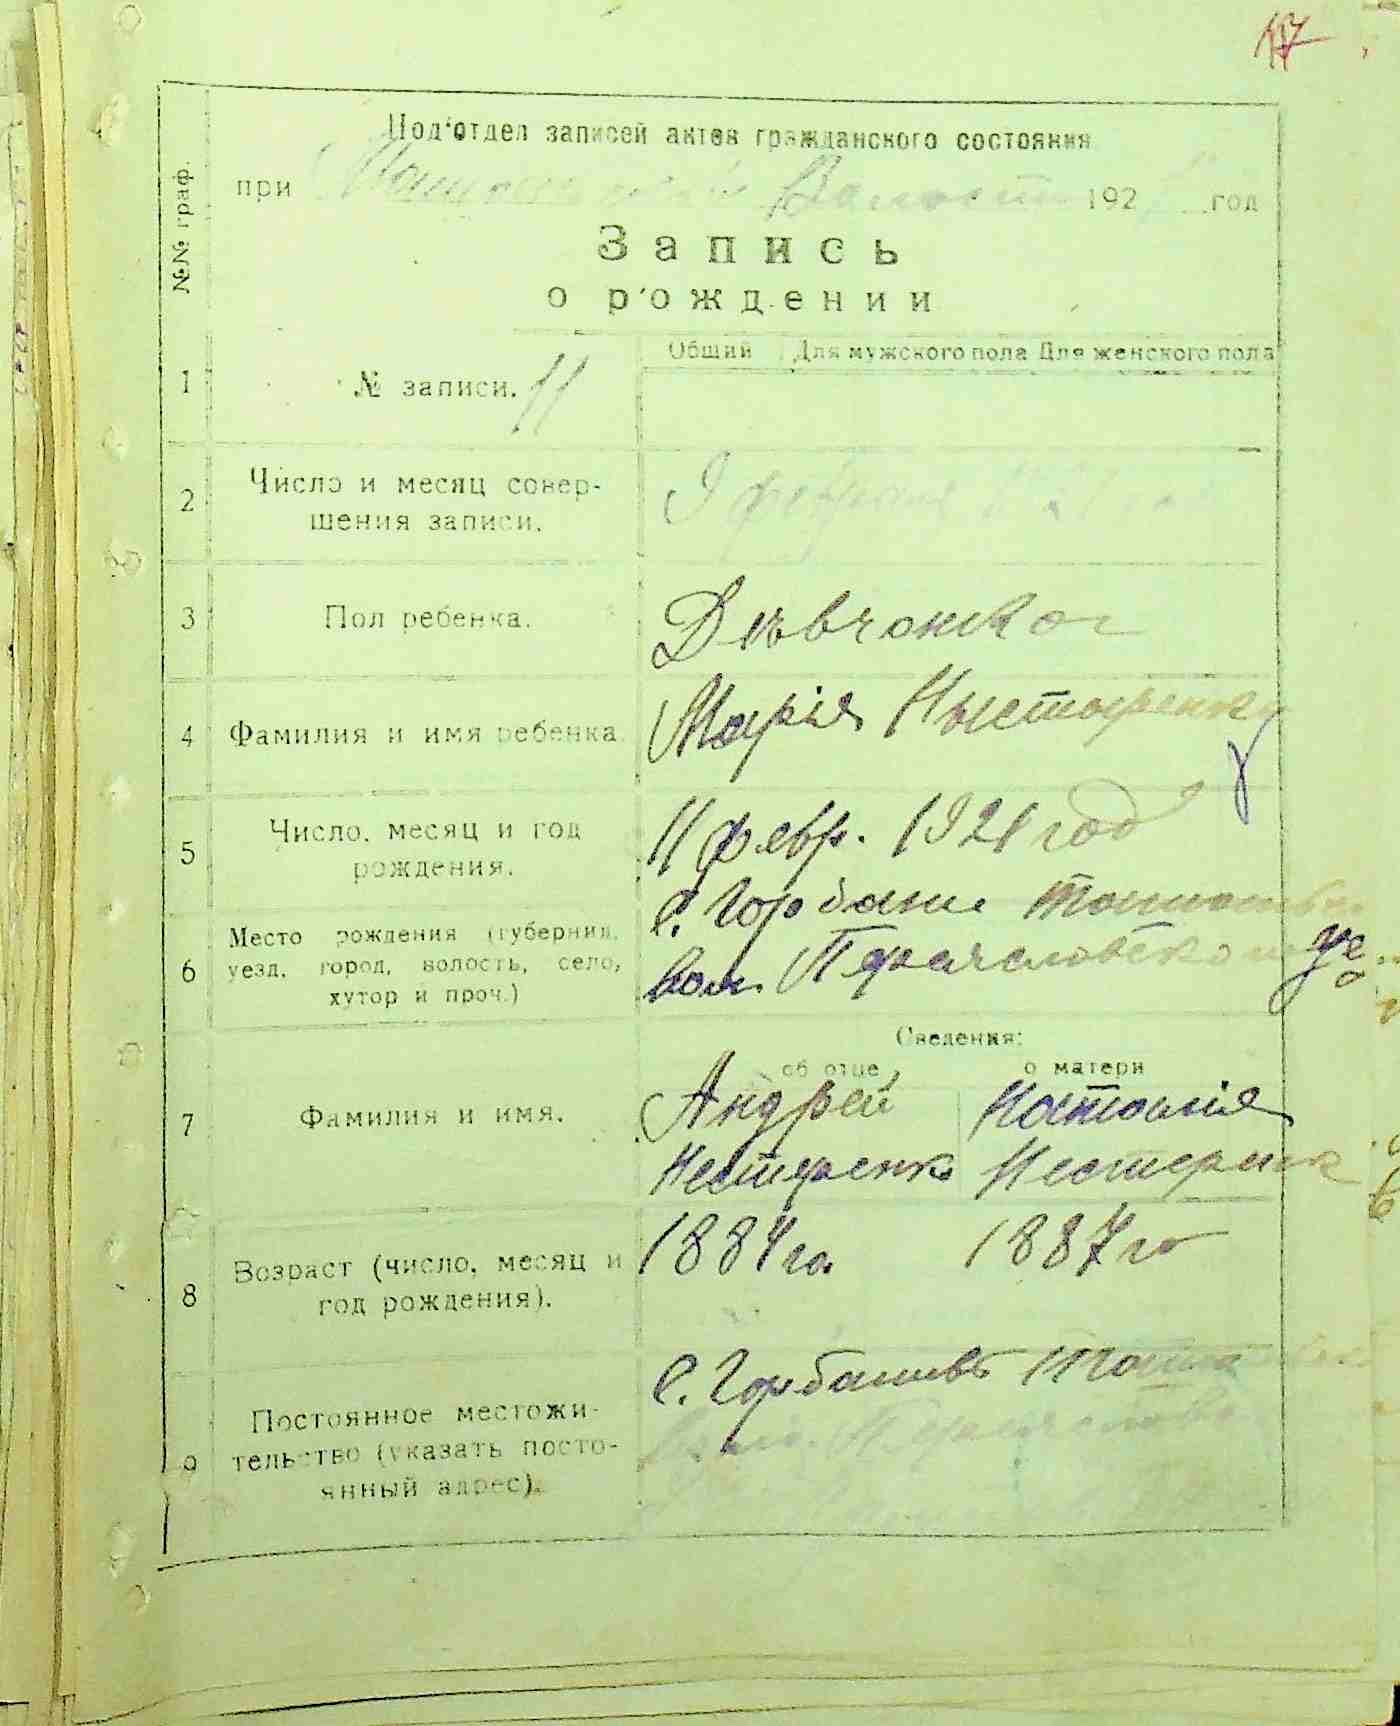 117
№№ граф.
Под'отдел записей актов гражданского состояния
при Волости 192 год
Запись
о рождении
Общий Для мужского пола Для женского пола
1 № записи. 11
2 Число и месяц совер-
шения записи.
3 Пол ребенка. Дѣвчонка
4 Фамилия и имя ребенка. Марія Нысторенко
5 Число, месяц и год
рождения. 11 февр. 1921 год
6 Место рождения (губерния,
уезд, город, волость, село,
хутор и проч.)
с. Горбани
вол. Переясловского уе
Сведения:
об отце о матери
7 Фамилия и имя. Андрей Наталія
Нестеренко Нестеренко
8 Возраст (число, месяц и
год рождения). 1884 го 1887 го
9 Постоянное местожи-
тельство (указать посто-
янный адрес).
с. Горбанивъ